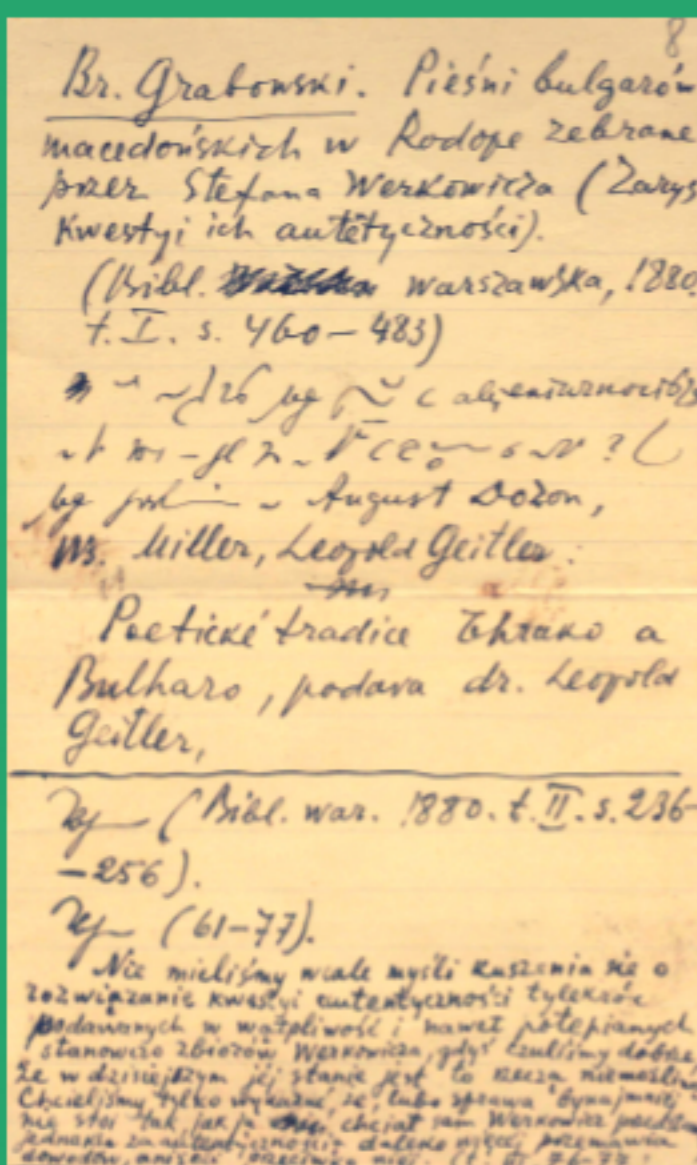 8
Br. Grabowski. Pieśni bulgarów
macedońskich w Rodope zebrane
przez Stefana Werkowicza (Zarys
Kwestyi ich autętyczności).
(Bibl. warszawska, 1880,
t. I. s. 460–483)
c
? (
August Dozon,
Miller, Leopold Geitler:
Poetické tradice Thrako a
Bulharo, podava dr. Leopold
Geitler,
(Bibl. war. 1880. t. II. s. 236
–256).
(61–77).
Nie mieliśmy wcale myśli kuszenia się o
rozwiązanie kwestyi autentyczności tylekroć
podawanych w wątpliwość i nawet potępianych
stanowczo zbiorów Werkowicza, gdyż czuliśmy dobrze
że w dzisiejszym jej stanie jest to rzeczą
Chcieliśmy tylko wykazać, że lubo sprawa bynajmniej
nie stoi tak, jak ją chciał sam Werkowicz
jednakże za autentycznością daleko więcej przemawia
dowodów, aniżeli przeciwko niej. (t. III 76–77.